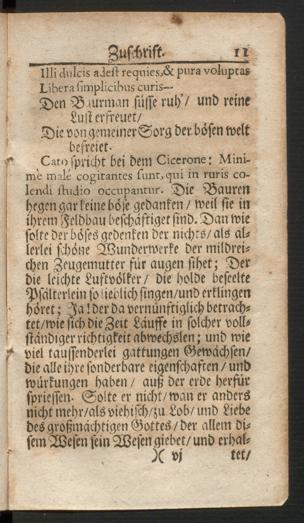 Zuschrift. 11
Illi dulcis adest requies, & pura voluptas
Libera simplicibus curis—
Den Baurman süsse ruh’/ und reine
Lust erfreuet/
Die von gemeiner Sorg der bösen welt
befreiet.
Cato spricht bei dem Cicerone: Mini-
me malè cogitantes sunt, qui in ruris co-
lendi studio occupantur. Die Bauren
hegen gar keine böse gedanken/ weil sie in
ihrem Feldbau beschäftiget sind. Dan wie
solte der böses gedenken der nichts/ als al-
lerlei schöne Wunderwerke der mildrei-
chen Zeugemutter für augen sihet; Der
die leichte Luftvölker/ die holde beseelte
Psälterlein so lieblich singen/ und erklingen
höret; Ja! der da vernünftiglich betrach-
tet/ wie sich die Zeit Läuffe in solcher voll-
ständiger richtigkeit abwechslen; und wie
viel taussenderlei gattungen Gewächsen/
die alle ihre sonderbare eigenschaften/ und
würkungen haben/ auß der erde herfür
spriessen. Solte er nicht/ wan er anders
nicht mehr/ als viehisch/ zu Lob/ und Liebe
des großmächtigen Gottes/ der allem di-
sem Wesen sein Wesen giebet/ und erhal-
)( vj tet/